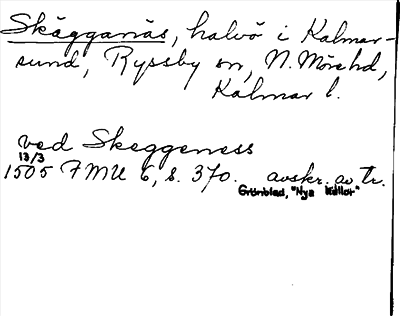 Skägganäs, halvö i Kalmar-
sund, Ryssby sn, N. Möre hd,
Kalmar l.
ved Skeggeness
13/3
1505 FMU 6, s. 370. avskr. av tr.
Grönblad, "Nya källor"